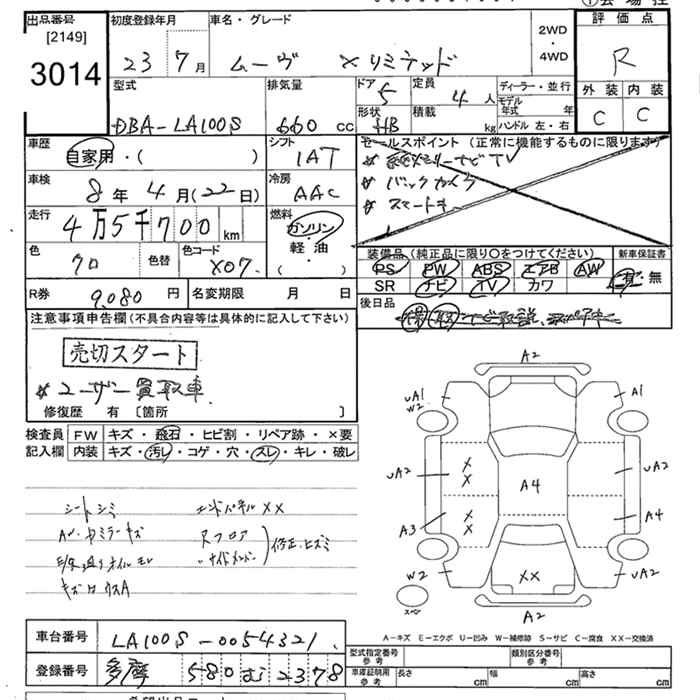 出品番号 初度登録年月 車名・グレード 評価点
[2149] 2WD・4WD
3014 23 7月 ムーヴ Xリミテッド R
型式 排気量 ドア 5 定員 4人 ディーラー・並行 外装 内装
DBA-LA100S 660cc 形状 HB 積載 kg モデル年式 年 C C
ハンドル 左・右
車歴 シフト セールスポイント (正常に機能するものに限ります)
自家用・( ) IAT
車検 冷房 * バックカメラ
8年4月(22日) AAC * スマートキー
走行 燃料
4万5千700km ガソリン・軽油・( )
色 色替 色コード 装備品(純正品に限り○をつけてください) 新車保証書
クロ X07. PS PW ABS エアB AW 有・無
SR ナビ TV カワ
R券 9,080円 名変期限 月 日 後日品
注意事項申告欄(不具合内容等は具体的に記入して下さい)
売切スタート
* ユーザー買取車
修復歴 有 [箇所 ]
検査員記入欄 FW キズ・飛石・ヒビ割・リペア跡・×要
内装 キズ・汚レ・コゲ・穴・スレ・キレ・破レ
シートシミ エンドパネルXX
Rフロア
サイドメンバー 修正、ヒズミ
A2
uA1 A1
W2
uA2 X X uA2
A4
A3 X X A4
W2 XX uA2
スペア
A2
A-キズ E-エクボ U-凹み W-補修跡 S-サビ C-腐食 XX-交換済
車台番号 LA100S-0054321
登録番号 多摩 580 む 2378
型式指定番号 参考 類別区分番号 参考
車庫証明用 参考 長さ cm 幅 cm 高さ cm